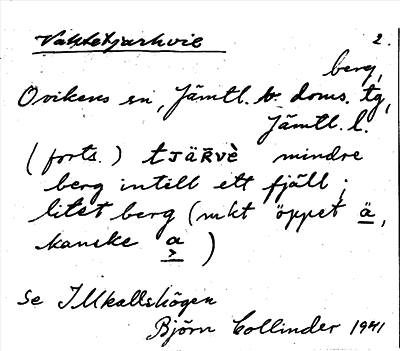 Vaktetjarkvie 2.
berg,
Ovikens sn, Jämtl. v. doms. tg,
Jämtl. l.
(forts.) tJÄRvè mindre
berg intill ett fjäll;
litet berg (mkt öppet ä,
kanske a)
se Illkallskögen
Björn Collinder 1941